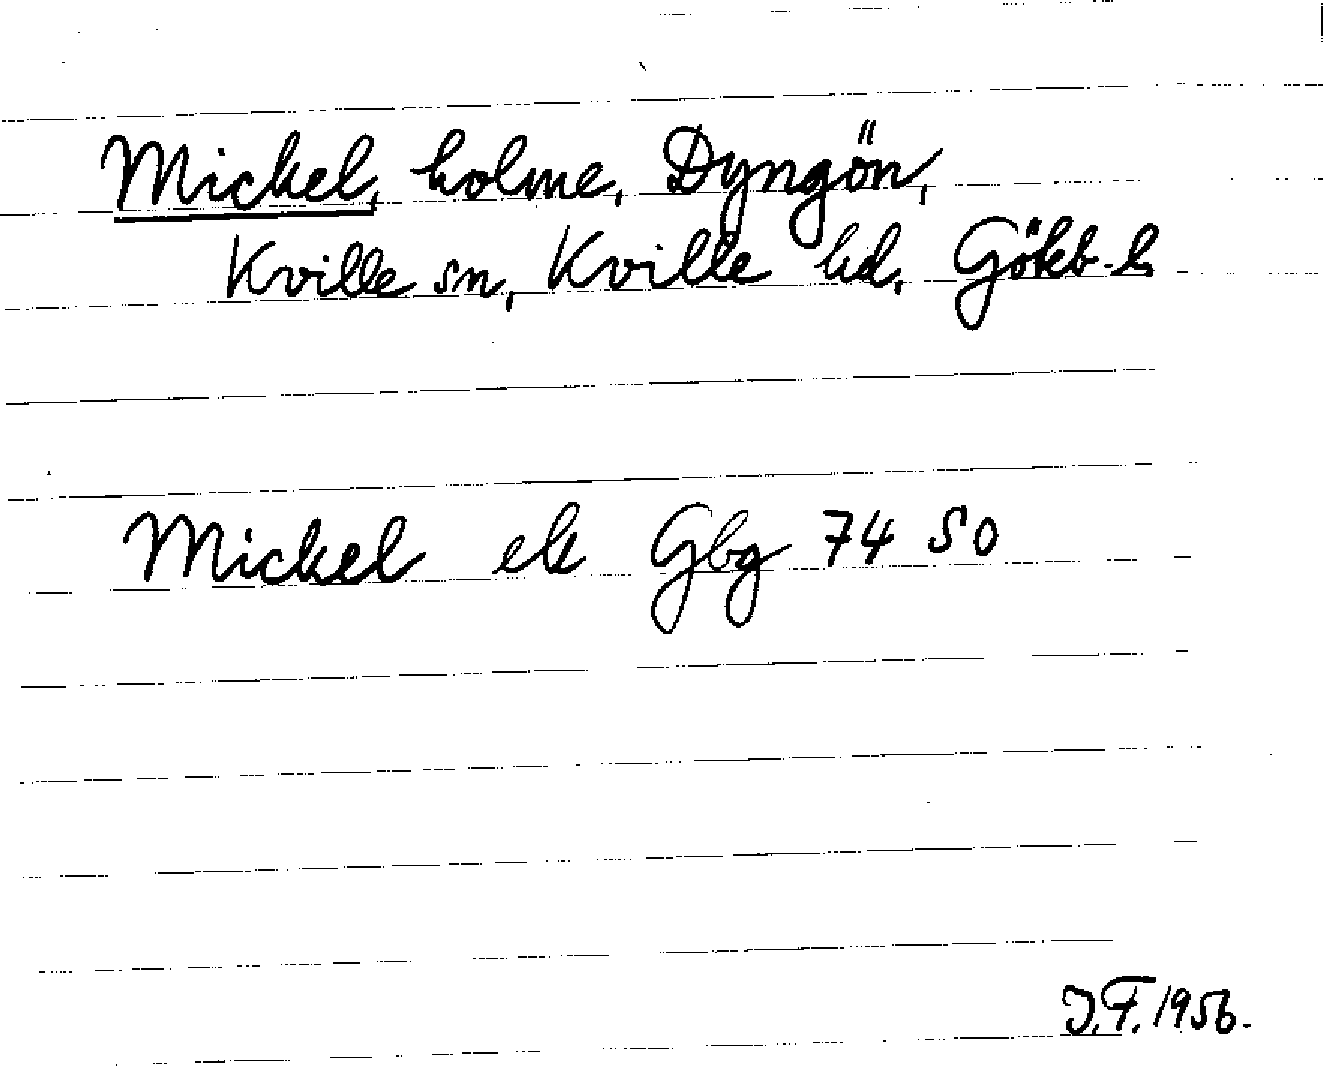 Mickel, holme, Dyngön,
Kville sn, Kville hd, Göteb-b
Mickel ek Gbg 74 SO
J.F. 1956.